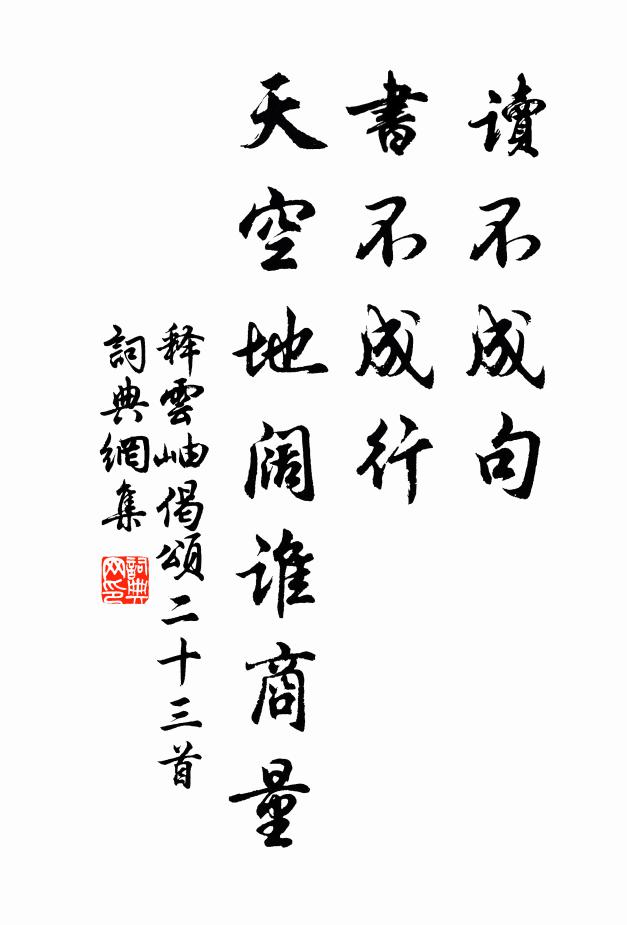 讀不成句
書不成行
天空地阔誰商量
释雲岫偈頌二十三首
詞典網集
詞典
网印